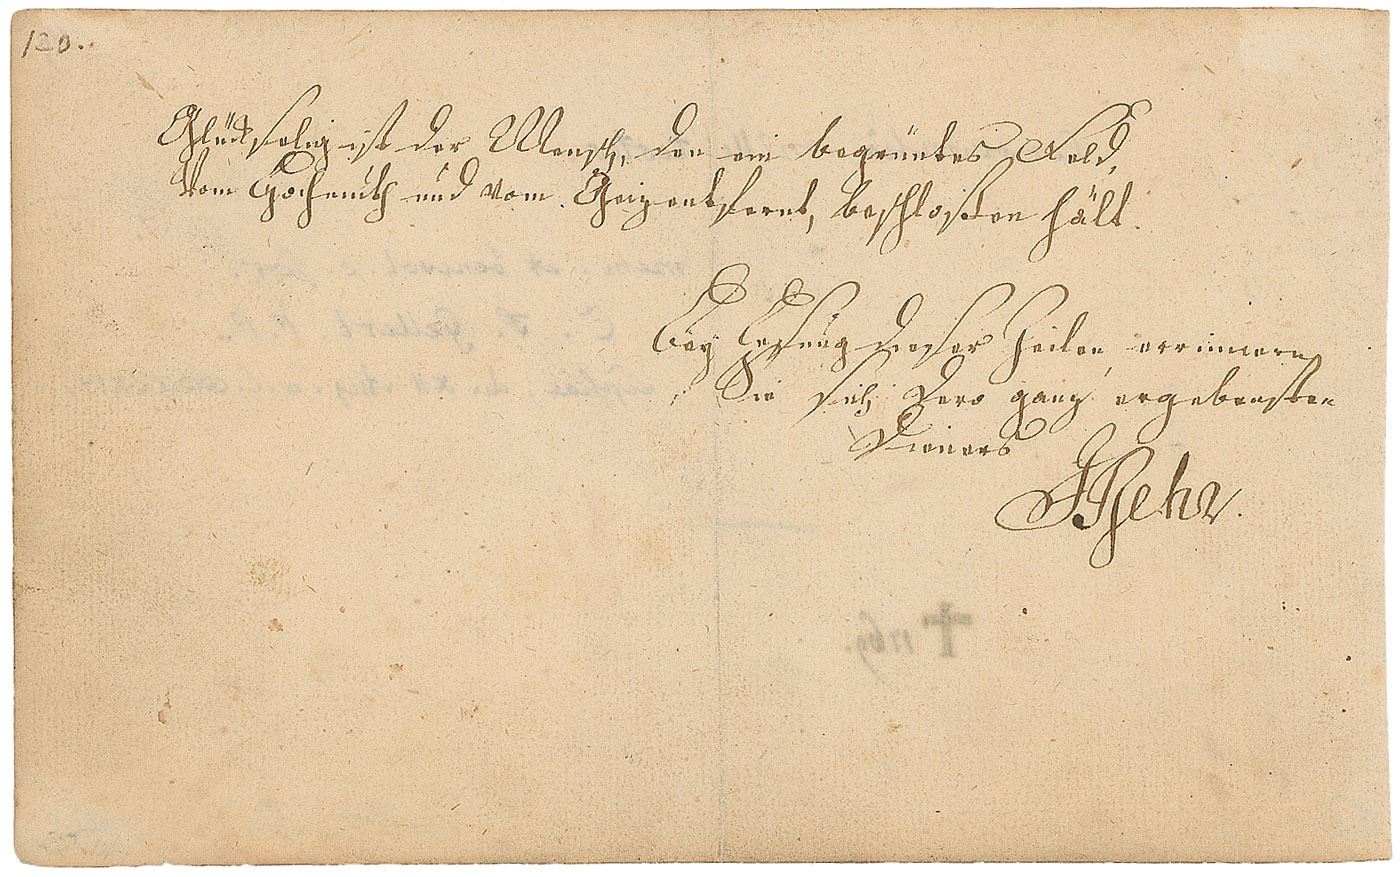 120.
Glückselig ist der Mensch, den ein begrüntes Feld,
Vom Hochmuth und vom Geiz entfernt, beschloßen hält.
Bey Lesung dieser Zeilen erinnern
Sie sich Dero ganz ergebensten
Dieners